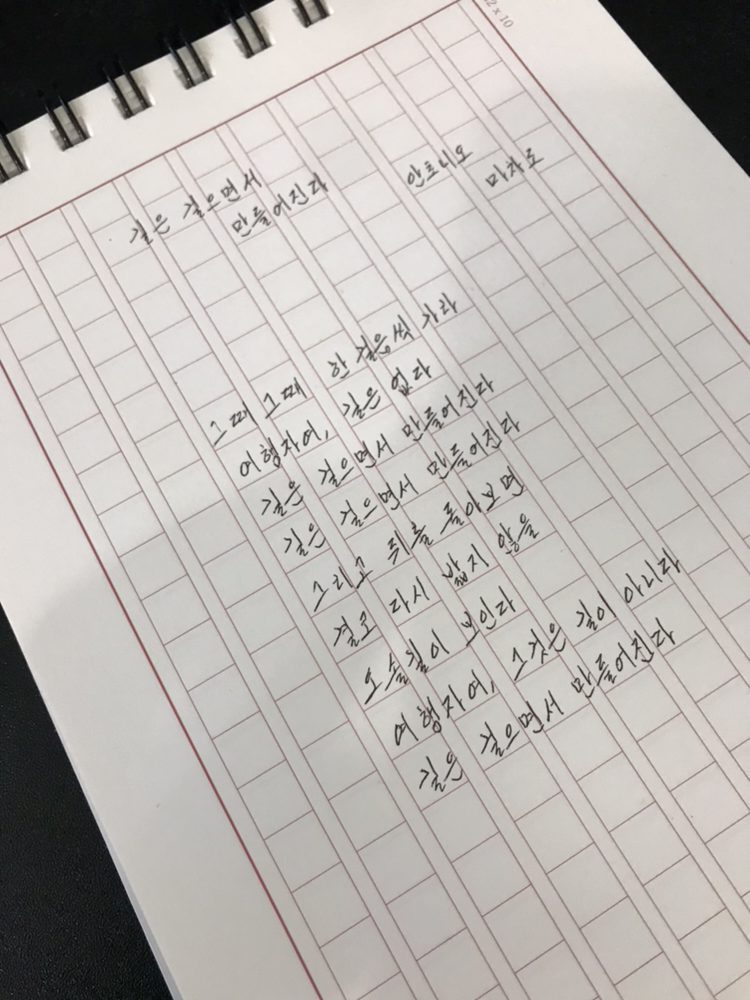 12 x 10
길은 걸으면서
만들어진다
안토니오
마차도
그때 그때 한 걸음씩 가라
여행자여, 길은 없다
길은 걸으면서 만들어진다
길은 걸으면서 만들어진다
그리고 뒤를 돌아보면
결코 다시 밟지 않을
오솔길이 보인다
여행자여, 그것은 길이 아니라
길은 걸으면서 만들어진다